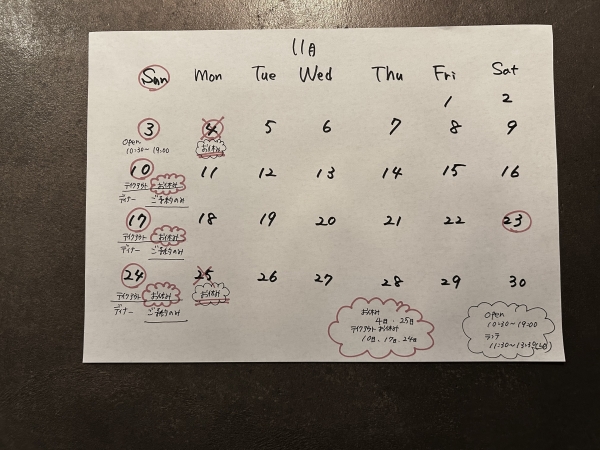 11月
Sun Mon Tue Wed Thu Fri Sat
1 2
3 4 5 6 7 8 9
Open
10:30~19:00
お休み
10 11 12 13 14 15 16
テイクアウト お休み
ディナー ご予約のみ
17 18 19 20 21 22 23
テイクアウト お休み
ディナー ご予約のみ
24 25 26 27 28 29 30
テイクアウト お休み
お休み
ディナー ご予約のみ
お休み
4日、25日
テイクアウトお休み
10日、17日、24日
Open
10:30~19:00
ランチ
11:30~13:30